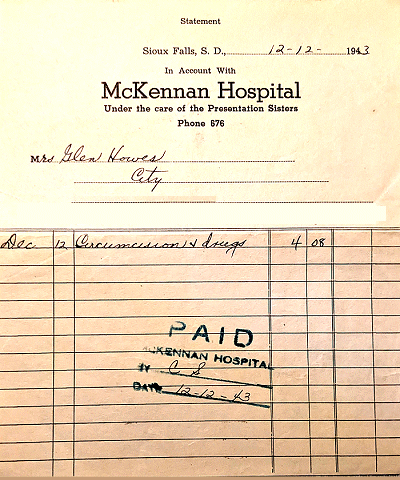 Statement
Sioux Falls, S. D., 12-12- 1943
In Account With
McKennan Hospital
Under the care of the Presentation Sisters
Phone 576
Mrs Glen Howes
City
Dec 12 Circumcision & drugs 4 08
PAID
McKENNAN HOSPITAL
BY C S
DATE 12-12-43